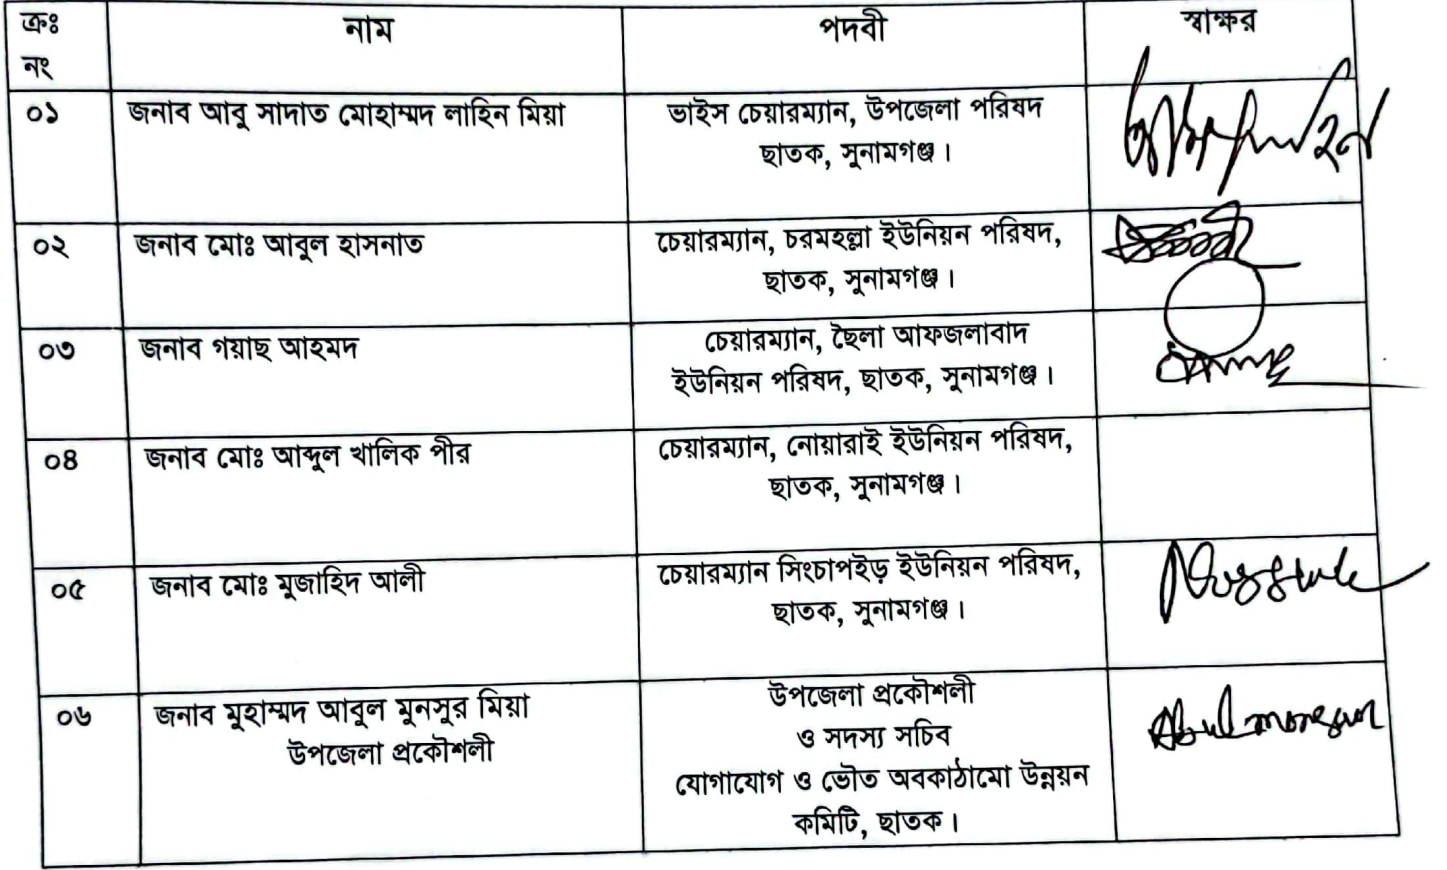 ক্রঃ নং নাম পদবী স্বাক্ষর
০১ জনাব আবু সাদাত মোহাম্মদ লাহিন মিয়া ভাইস চেয়ারম্যান, উপজেলা পরিষদ
ছাতক, সুনামগঞ্জ।
০২ জনাব মোঃ আবুল হাসনাত চেয়ারম্যান, চরমহল্লা ইউনিয়ন পরিষদ,
ছাতক, সুনামগঞ্জ।
০৩ জনাব গয়াছ আহমদ চেয়ারম্যান, ছৈলা আফজলাবাদ
ইউনিয়ন পরিষদ, ছাতক, সুনামগঞ্জ।
০৪ জনাব মোঃ আব্দুল খালিক পীর চেয়ারম্যান, নোয়ারাই ইউনিয়ন পরিষদ,
ছাতক, সুনামগঞ্জ।
০৫ জনাব মোঃ মুজাহিদ আলী চেয়ারম্যান সিংচাপইড় ইউনিয়ন পরিষদ,
ছাতক, সুনামগঞ্জ।
০৬ জনাব মুহাম্মদ আবুল মুনসুর মিয়া উপজেলা প্রকৌশলী
উপজেলা প্রকৌশলী ও সদস্য সচিব
যোগাযোগ ও ভৌত অবকাঠামো উন্নয়ন
কমিটি, ছাতক।